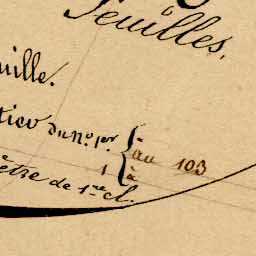 Feuilles.
uille.
du N.º 1er { au 103
1 à
être de 1re cl.